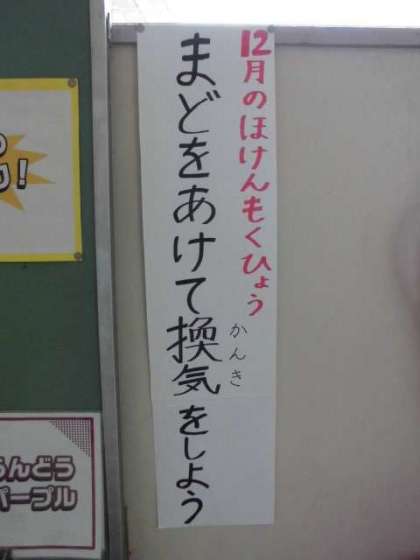 12月のほけんもくひょう
まどをあけて換気をしよう
かんき
!
うんどう
パープル